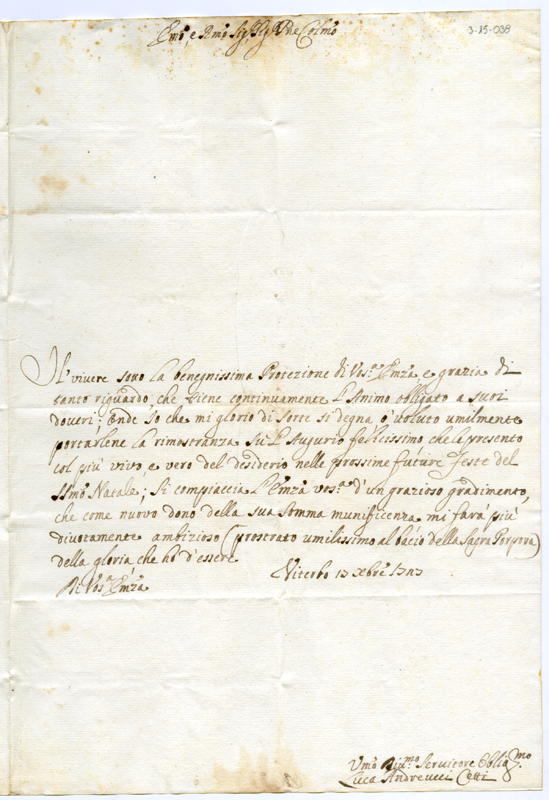 3-15-038
Emõ, e Rmõ Sig.r Sig.r Pñe Colmõ
Il vivere sotto la benegnissima Protezione di Vos.ª Emzª, e grazia di
tanto riguardo, che tiene continuamente l'Animo obligato a suoi
doveri; Onde Io che mi glorio di sorte si degna, ò voluto umilmente
portarlene la rimostranza su l'Augurio felicissimo che le presento
col più vivo e vero del desiderio nelle prossime future feste del
SSmõ Natale; Si compiaccia l'Emzª vos.ª d'un grazioso gradimento,
che come nuovo dono della sua somma munificenza mi farà più
divotamente ambizioso (prostrato umilissimo al bacio della Sagra Porpora)
della gloria, che hò d'essere
Viterbo 13 xbrẽ
Di Vos.ª Emzª
Umõ Servitore Oblig.mo
Luca Andreucci